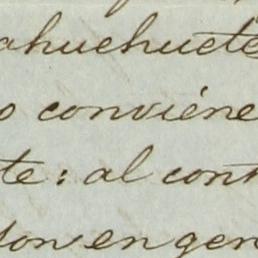 ahuehuete
o conviéne
te: al cont
son en gen